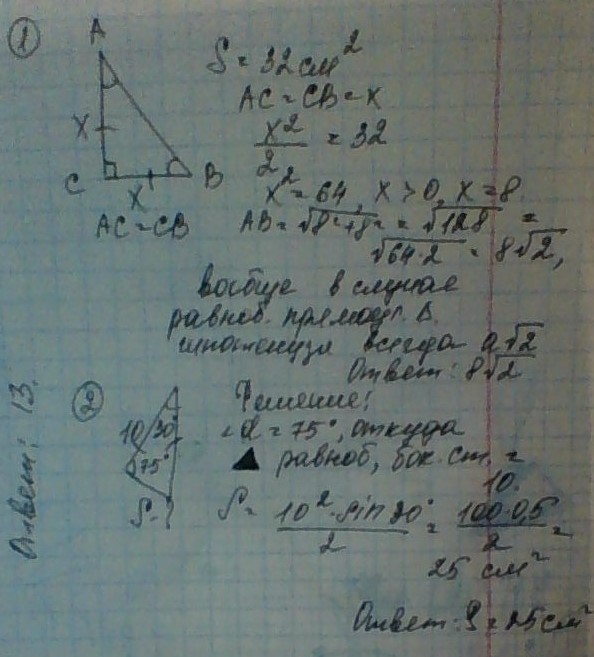 1
A
S = 32 см²
AC = CB = X
X
x²/2 = 32
C
B
X
AC = CB
x² = 64, x > 0, x = 8.
AB = √8²+8² = √128 =
√64·2 = 8√2,
вообще в случае
равноб. прямоуг. Δ.
гипотенуза всегда a√2
Ответ: 8√2
Ответ: 13.
2
Решение:
10
30°
75°
S-?
= α = 75°, откуда
равноб, бок. ст. =
10.
S = 10²·sin30°/2 = 100·0,5/2 =
25 см²
Ответ: S = 25 см²